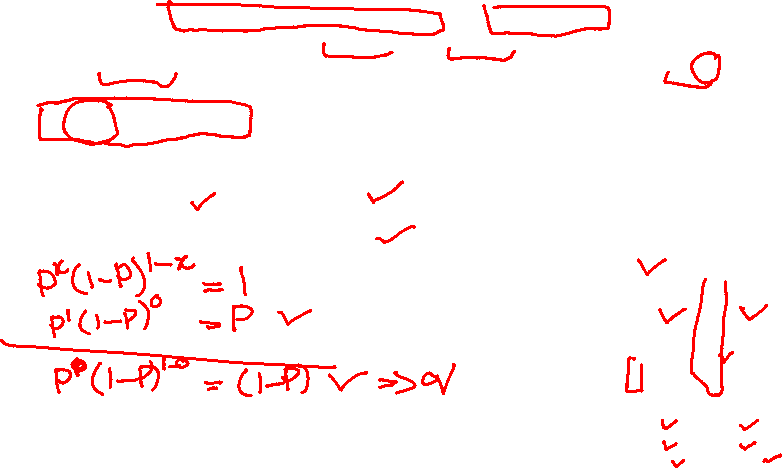 p^x (1-p)^{1-x} = 1
p^1 (1-p)^0 = p ✓
p^0 (1-p)^{1-0} = (1-p) ✓ => q